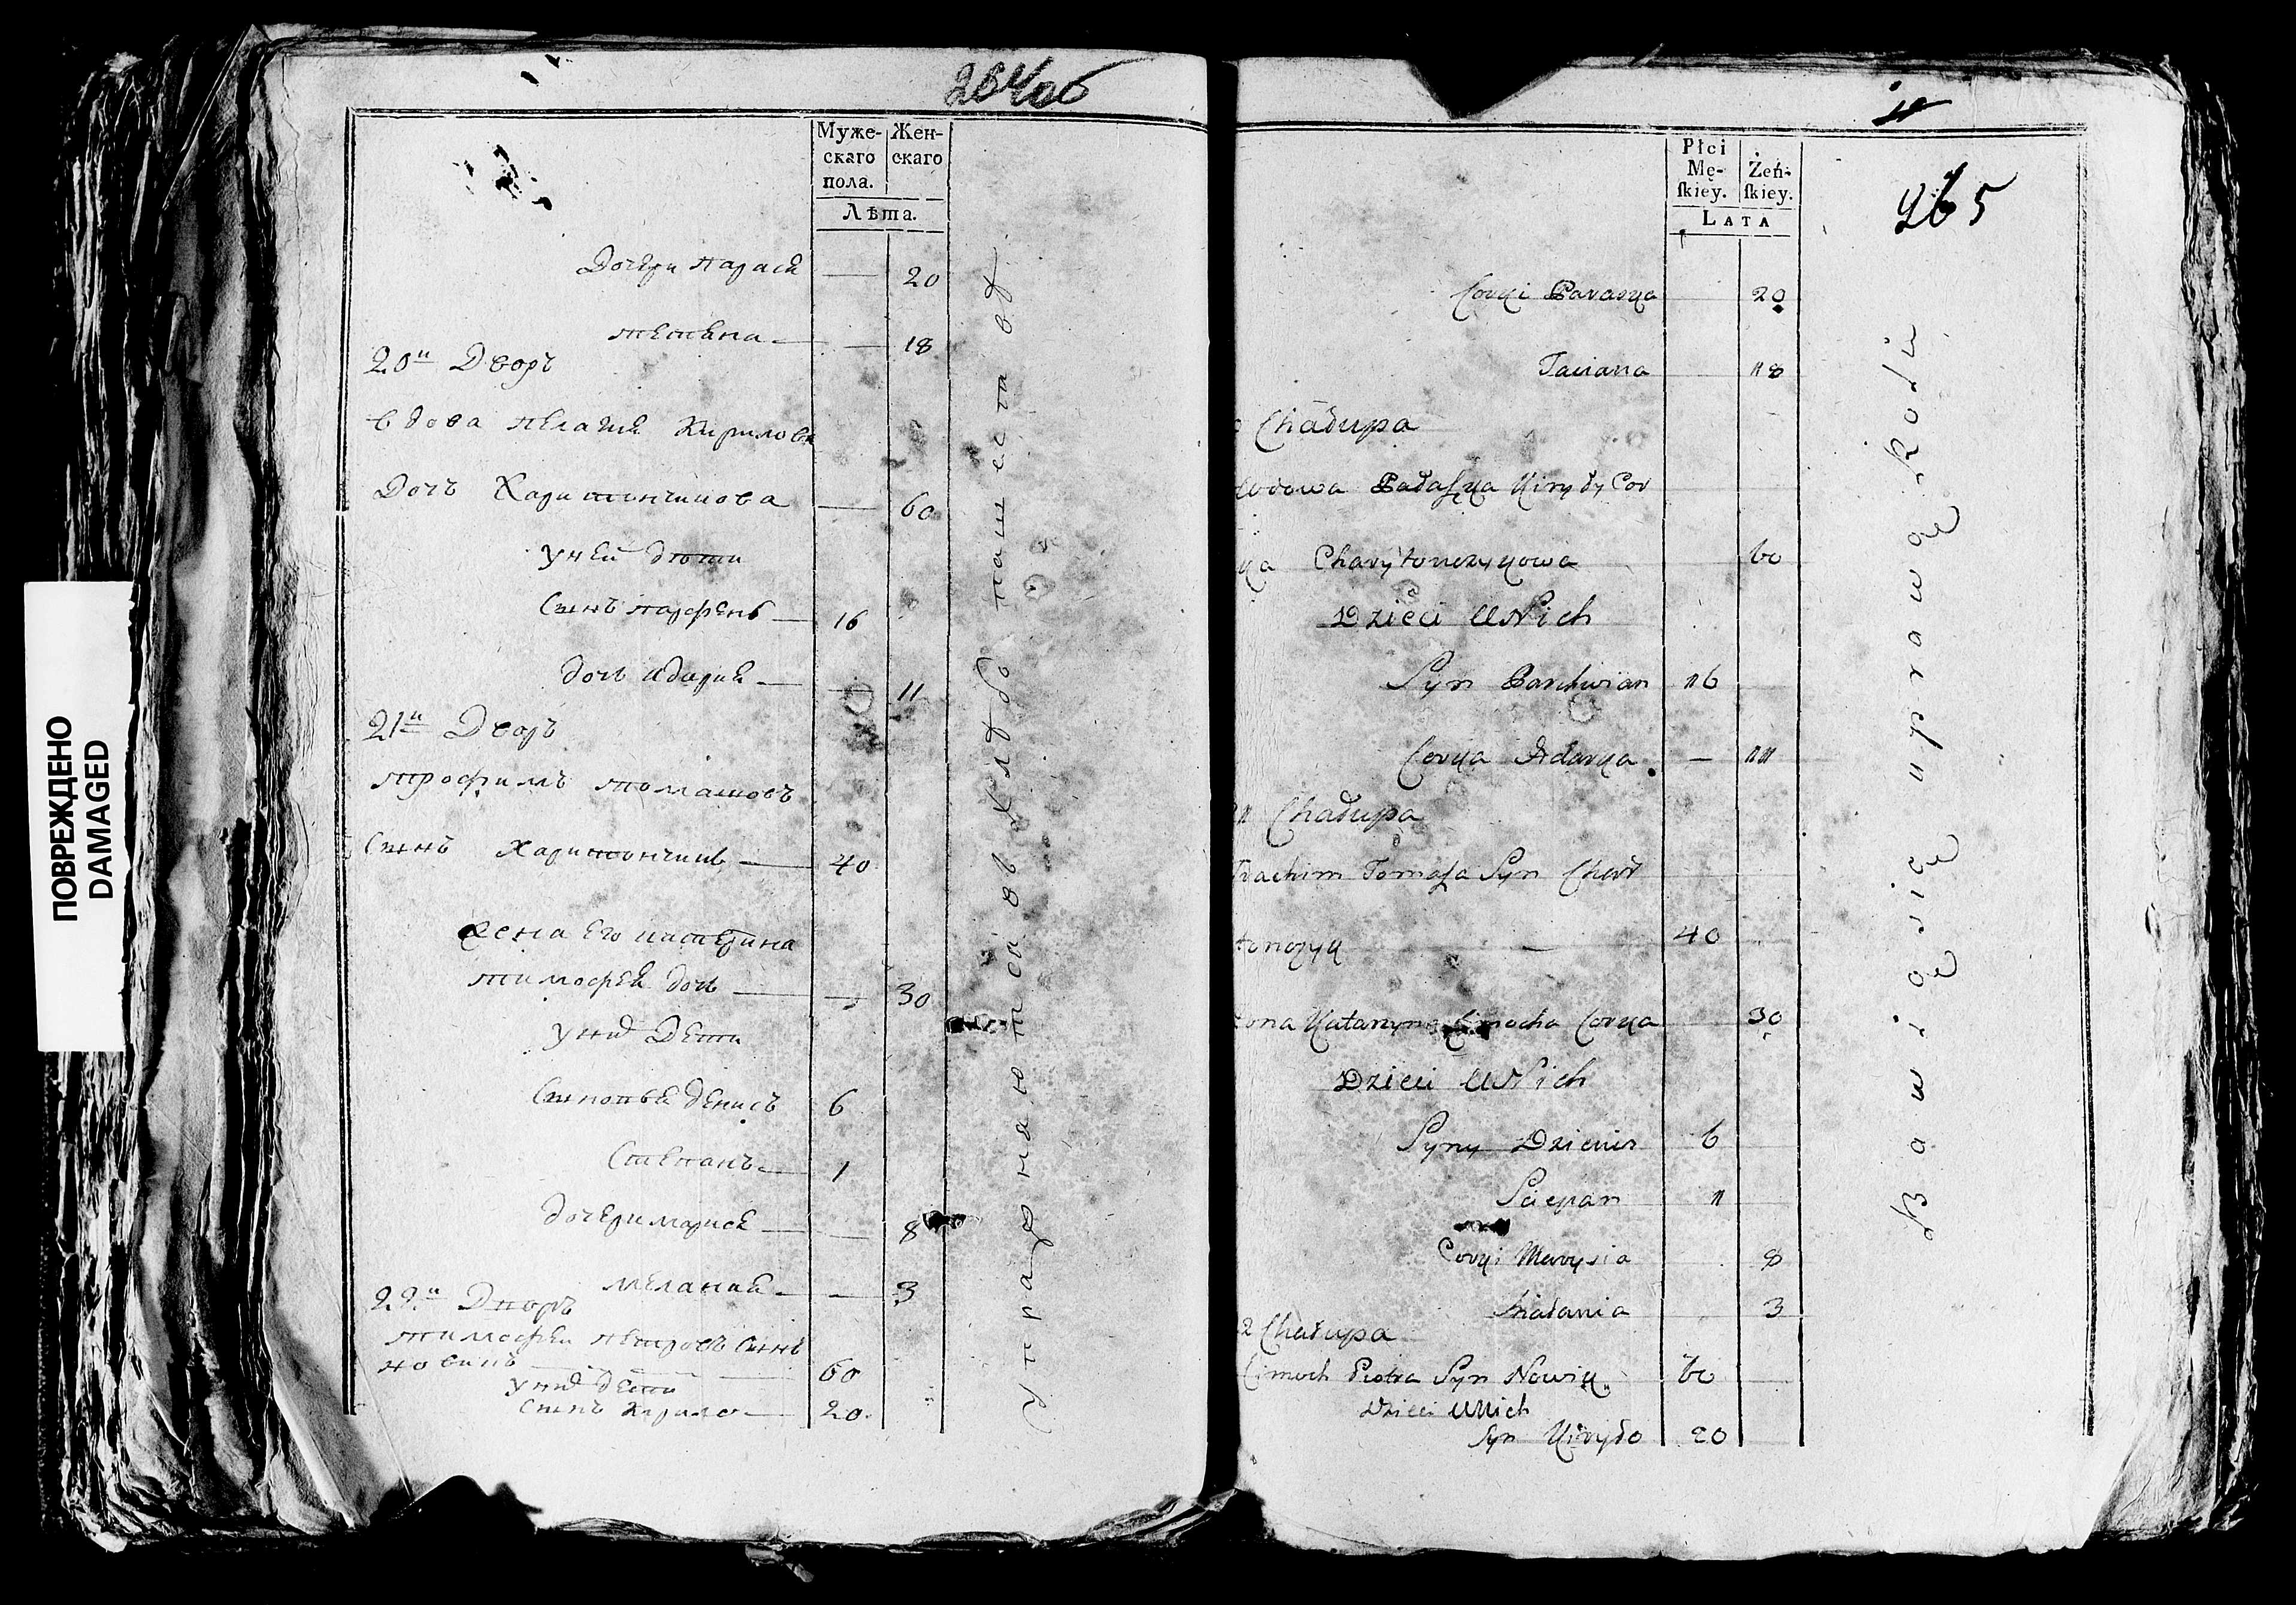 ПОВРЕЖДЕНО
DAMAGED
264об
Муже- Жен-
скаго скаго
пола.
Лѣта.
Дочери Парася — 20
Тетяна — 18
20й Дворъ
вдова Пелагия Кирилова
Дочь Харитончикова — 60
у ней дѣти
Сынъ Парфенъ — 16
дочь Адария — 11
21й Дворъ
Трофимъ Томашовъ
Сынъ Харитончикъ — 40
Жена его Катерина
Тимофея дочь — 30
у них Дети
Сыновья Денисъ 6
Степанъ — 1
дочери Марися — 8
Мелания — 3
22й Дворъ
Тимофей Петровъ Сынъ
Новикъ — 60
у них дети
Сынъ Кирило — 20
Упражняются в хлебопашестве
265
Płci
Mę- Żeń-
ſkiey. ſkiey.
LATA
Corki Parasya 20
Taciana 18
Chałupa
wdowa Pałaſya Kiryły Cor
ka Charytonczykowa 60
Dzieci U Nich
Syn Parchwian 16
Corka Adarya — 11
Chałupa
Tomaſa Syn Chary
tonczyk — 40
Żona Katarzyna Cimocha Corka 30
Dzieci U Nich
Syny Dzienis 6
Sciepan 1
Corki Marysia 8
Małania 3
2 Chałupa
Cimoch Piotra Syn Nowik 60
Dzieci U Nich
Syn Kiryło 20
Bawią się uprawą Roli